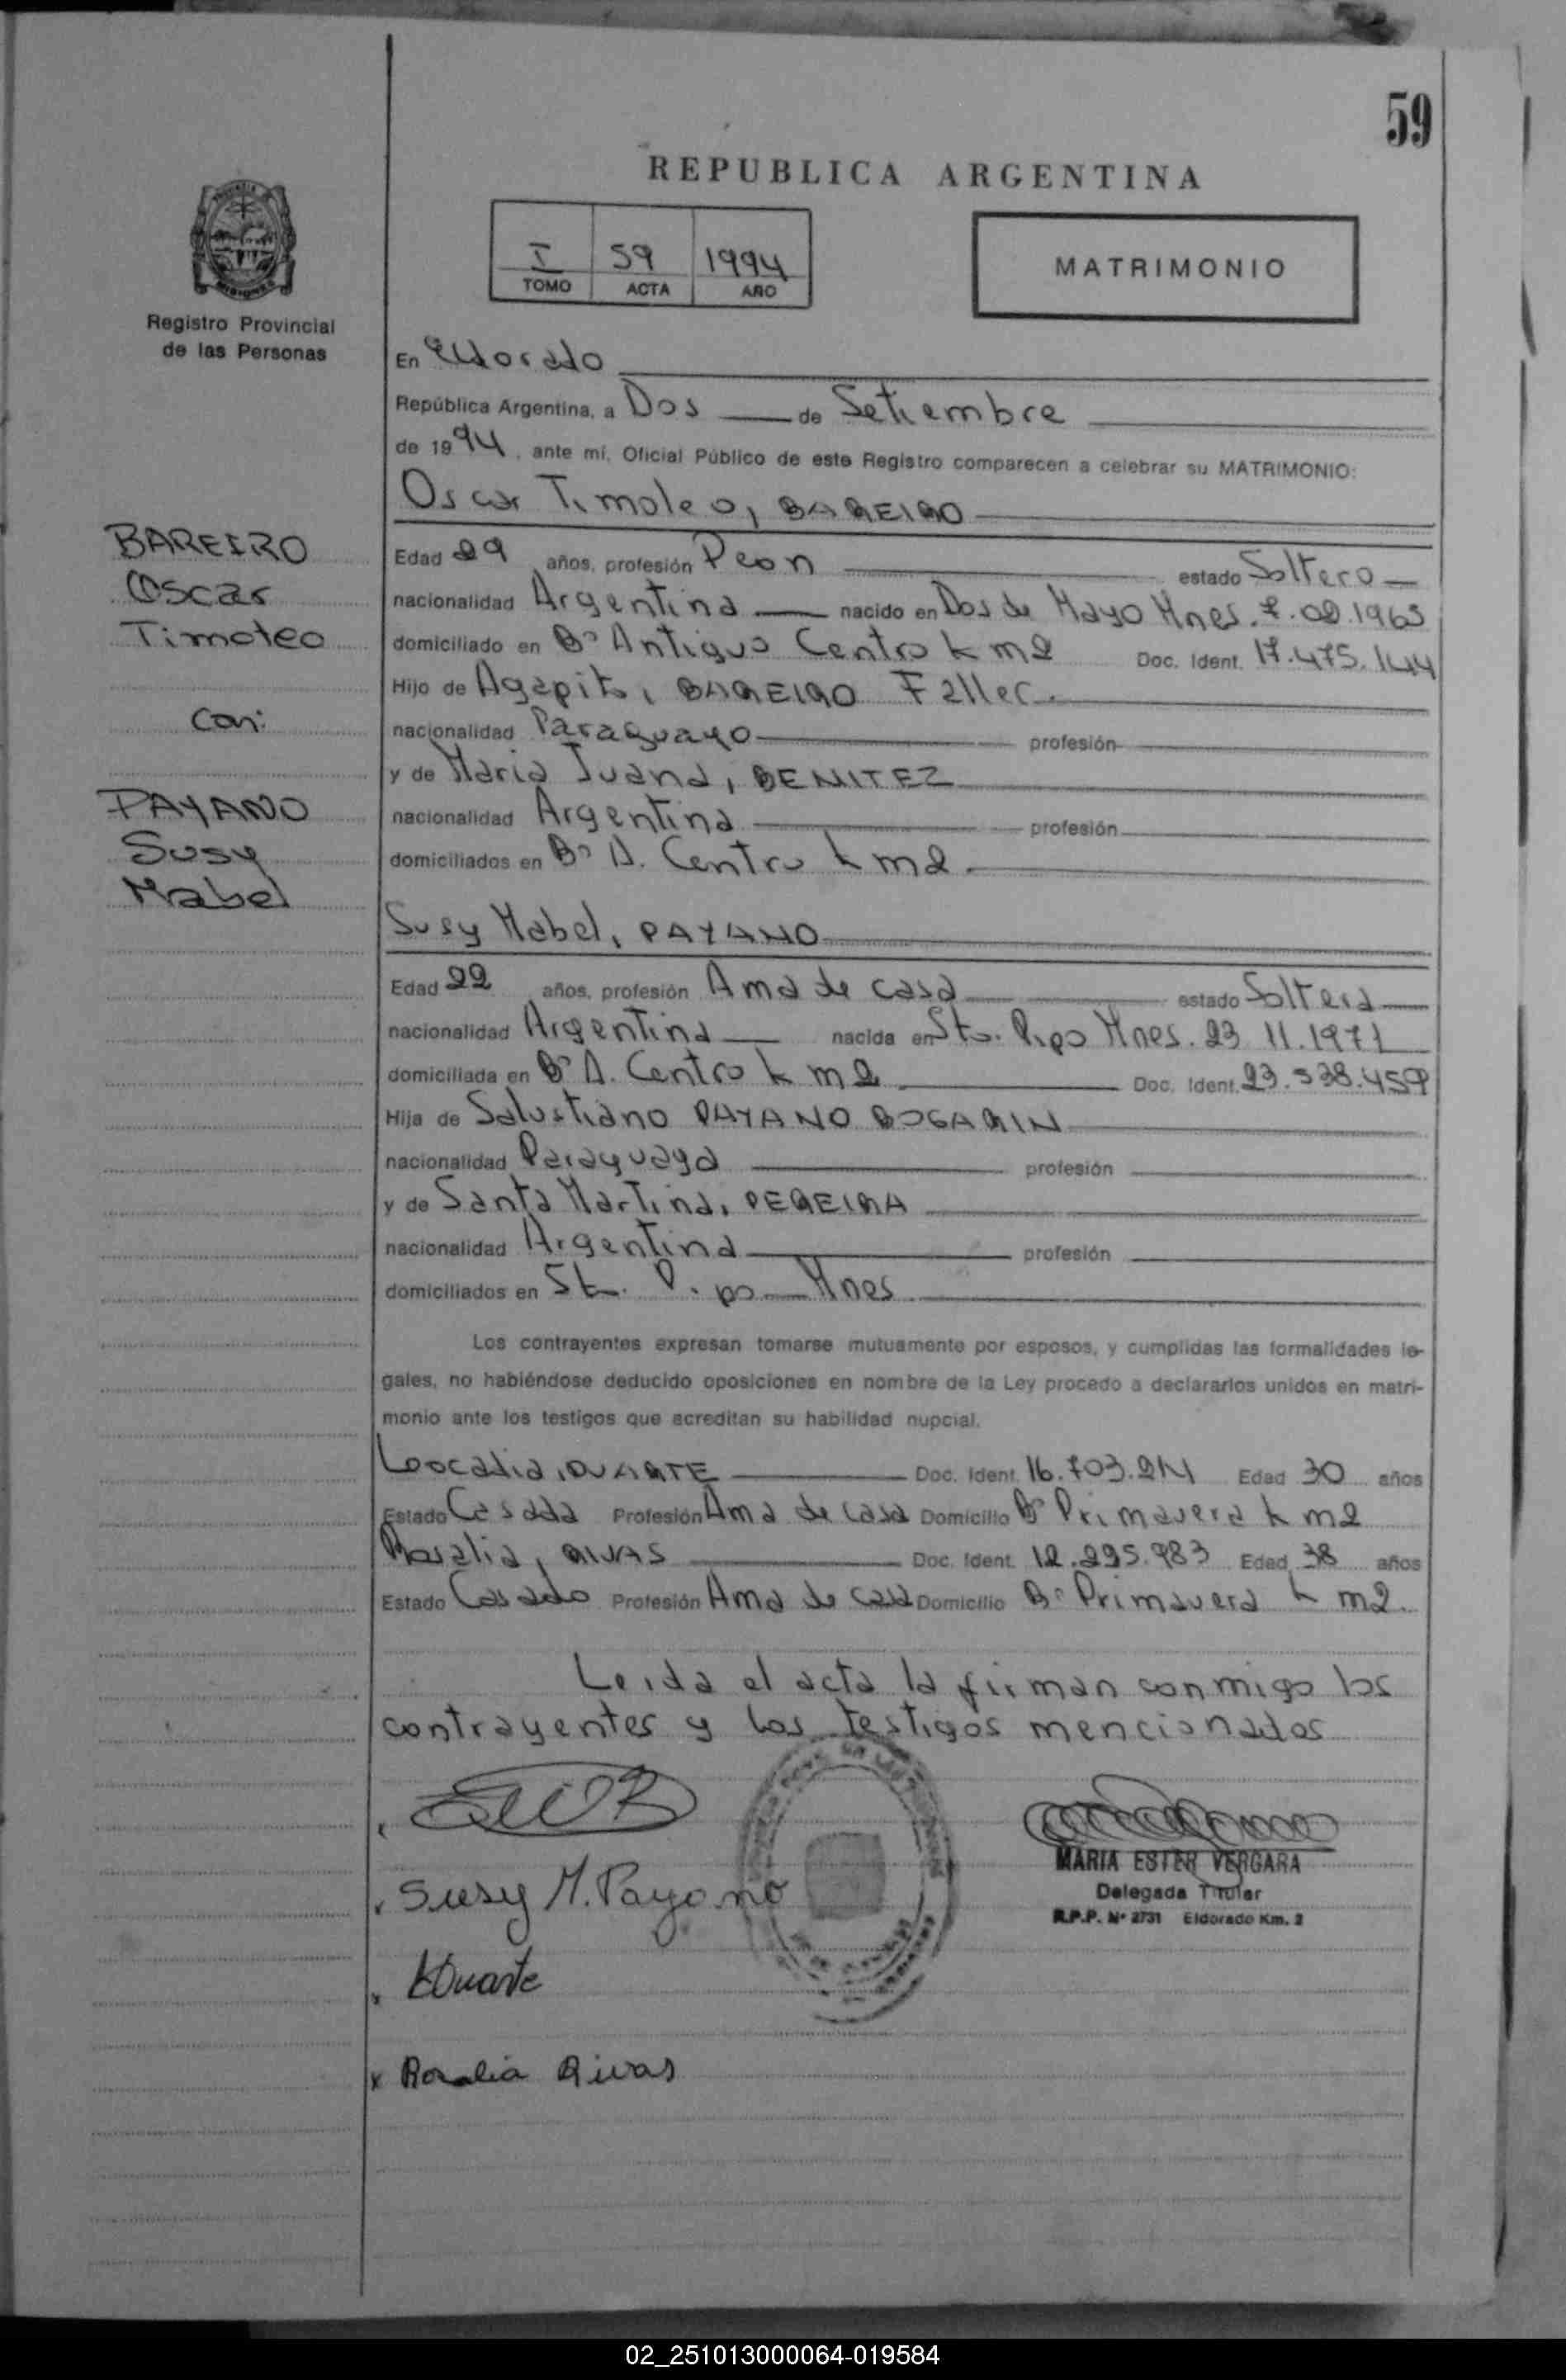 59
REPUBLICA ARGENTINA
I 59 1994
TOMO ACTA AÑO
MATRIMONIO
Registro Provincial
de las Personas
En Eldorado
República Argentina, a Dos de Setiembre
de 1994, ante mí, Oficial Público de este Registro comparecen a celebrar su MATRIMONIO:
Oscar Timoteo, BAREIRO
BAREIRO
Oscar
Timoteo
con:
PAYANO
Susy
Mabel
Edad 29 años, profesión Peon estado Soltero
nacionalidad Argentina nacido en Dos de Mayo Mnes. 7.02.1965
domiciliado en B° Antiguo Centro km2 Doc. Ident. 17.475.144
Hijo de Agapito, BAREIRO Faller.
nacionalidad Paraguayo profesión
y de Maria Juana, BENITEZ
nacionalidad Argentina profesión
domiciliados en B° A. Centro km2.
Susy Mabel, PAYANO
Edad 22 años, profesión Ama de casa estado Soltera
nacionalidad Argentina nacida en Pto. Pipo Mnes. 23 11.1971
domiciliada en B° A. Centro km2 Doc. Ident. 23.538.459
Hija de Salustiano PAYANO BOGARIN
nacionalidad Paraguaya profesión
y de Santa Martina, PEREIRA
nacionalidad Argentina profesión
domiciliados en Mnes
Los contrayentes expresan tomarse mutuamente por esposos, y cumplidas las formalidades le-
gales, no habiéndose deducido oposiciones en nombre de la Ley procedo a declararlos unidos en matri-
monio ante los testigos que acreditan su habilidad nupcial.
Leocadia, DUARTE Doc. Ident. 16.703.214 Edad 30 años
Estado Casada Profesión Ama de casa Domicilio B° Primavera km2
Rosalia, RIVAS Doc. Ident. 12.295.983 Edad 38 años
Estado Casado Profesión Ama de casa Domicilio B° Primavera km2.
Leida el acta la firman conmigo los
contrayentes y los testigos mencionados
MARIA ESTER VERGARA
Delegada Titular
R.P.P. N° 2731 Eldorado Km. 2
Susy M. Payano
LDuarte
x Rosalia Rivas
02_251013000064-019584